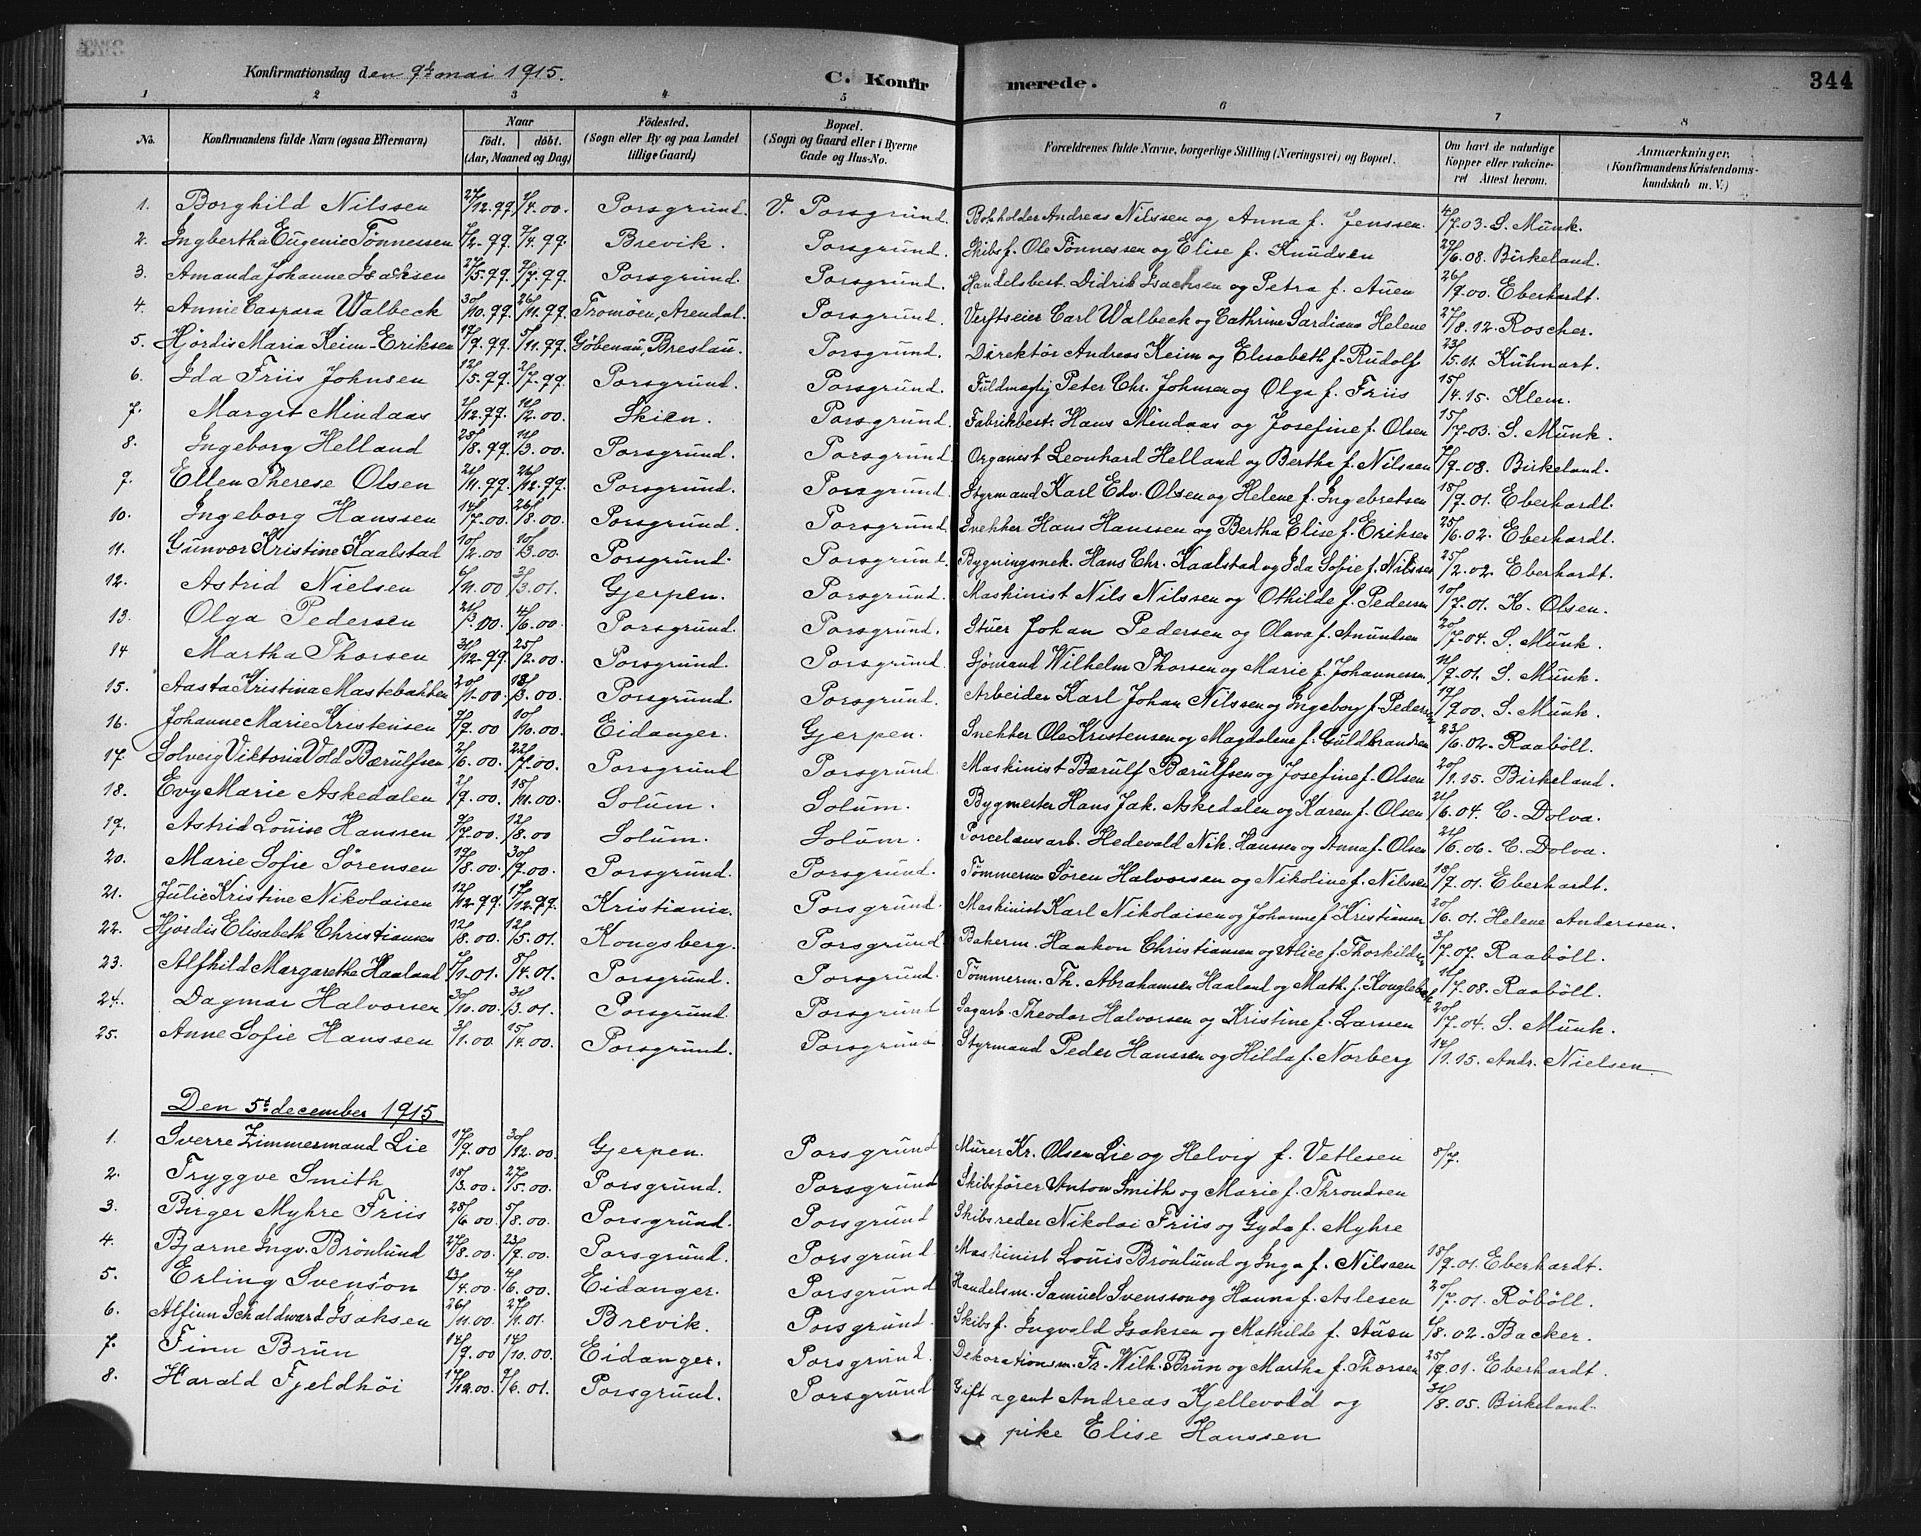 Konfirmationsdag den 9de mai 1915. C. Konfirmerede. 344
1 2 3 4 5 6 7 8
No. Konfirmandens fulde Navn (ogsaa Efternavn) Naar födt. döbt. (Aar, Maaned og Dag) Födested. (Sogn eller By og paa Landet tillige Gaard) Bopæl. (Sogn og Gaard eller i Byerne Gade og Hus-No. Forældrenes fulde Navne, borgerlige Stilling (Næringsvei) og Bopæl. Om havt de naturlige Kopper eller vakcineret Attest herom. Anmærkninger. (Konfirmandens Kristendomskundskab m. V.)
1. Borghild Nilssen 27/12.99. /4.00. Porsgrund. V. Porsgrund. Bokholder Andreas Nilssen og Anna f. Jenssen 4/7-03. S. Munk.
2. Ingbertha Eugenie Tönnessen /2-99. 9/4.99. Brevik. Porsgrund. Skibsf. Ole Tönnessen og Elise f. Knudsen 29/6.08. Birkeland.
3. Amanda Johanne Isachsen 27/5.99. 9/7.99. Porsgrund. Porsgrund. Handelsbest. Didrik Isachsen og Petra f. Auen 26/9.00. Eberhardt.
4. Annie Caspara Walbeck 30/10.99. 26/11.99. Tromöen, Arendal. Porsgrund. Verftseier Carl Walbeck og Cathrine Sardiana Helene 27/8.12. Roscher.
5. Hjördis Maria Keim-Eriksen 19/9.99. 5/11.99. Göbenau, Breslau. Porsgrund. Direktör Andreas Keim og Elisabeth f. Rudolf 23/5.11. Kuhnart.
6. Ida Friis Johnsen 12/5.99. 2/7.99. Porsgrund. Porsgrund. Fuldmægtig Peter Chr. Johnsen og Olga f. Friis 15/4.15. Klem.
7. Margit Mindaas 2/12.99. 11/2.00. Skien. Porsgrund. Fabrikbest. Hans Mindaas og Josefine f. Olsen 15/7-03. S. Munk.
8. Ingeborg Helland 28/8.99. 11/3.00. Porsgrund. Porsgrund. Organist Leonhard Helland og Bertha f. Nilssen /9-08. Birkeland.
9. Ellen Therese Olsen 21/11.99. 26/12.99. Porsgrund. Porsgrund. Styrmand Karl Edv. Olsen og Helene f. Ingebretsen 18/9.01. Eberhardt.
10. Ingeborg Hanssen 14/7.00. 26/8.00. Porsgrund. Porsgrund. Snekker Hans Hanssen og Bertha Elise f. Eriksen 25/6.02. Eberhardt.
11. Gunvor Kristine Kaalstad 10/2.00 10/3.00. Porsgrund. Porsgrund. Bygningsnek. Hans Chr. Kaalstad og Ida Sofie f. Nilssen 25/2.02. Eberhardt.
12. Astrid Nielsen 6/11.00 3/3.01. Gjerpen. Porsgrund. Maskinist Nils Nilssen og Othilde f. Pedersen 10/7.01. K. Olsen.
13. Olga Pedersen 21/3.00. 4/6.00. Porsgrund. Porsgrund. Stuer Johan Pedersen og Olava f. Anundsen 20/7-04. S. Munk.
14 Martha Thorsen 31/12.99. 25/2.00. Porsgrund. Porsgrund. Sjömand Wilhelm Thorsen og Marie f. Johannessen 11/9.01. S. Munk.
15. Aasta Kristina Mastebakken 20/1.00. 18/3.00. Porsgrund. Porsgrund. Arbeider Karl Johan Nilssen og Ingeborg f. Pedersen 19/9.00. S. Munk.
16. Johanne Marie Kristensen 9/9.00 10/10.00. Eidanger. Gjerpen. Snekker Ole Kristensen og Magdalene f. Guldbrandsen 23/6.02. Raaböll.
17. Solveig Viktoria Vold Bærulfsen 2/6.00. 22/7.00. Porsgrund Porsgrund. Maskinist Bærulf Bærulfsen og Josefine f. Olsen 20/1.15. Birkeland.
18. Evy Marie Askedalen 2/9.00. 18/11.00. Solum. Solum. Bygmester Hans Jak. Askedalen og Karen f. Olsen 21/6.04. C. Dolva.
19. Astrid Louise Hanssen 9/7.00. 12/8.00 Solum. Solum. Porcelænsarb. Hedevald Nik. Hanssen og Anna f. Olsen 21/6.06. C. Dolva.
20. Marie Sofie Sörensen 19/8.00. 30/9.00. Porsgrund. Porsgrund. Tömmerm. Sören Halvorsen og Nikoline f. Nilssen 18/9.01. Eberhardt.
21. Julie Kristine Nikolaisen 12/12.99. 17/12.99. Kristiania. Porsgrund. Maskinist Karl Nikolaisen og Johanne f. Kristiansen 20/6.01. Helene Anderssen.
22. Hjördis Elisabeth Christiansen 12/8.00. 12/5.01. Kongsberg. Porsgrund. Bakerm. Haakon Christiansen og Alice f. Thorkildsen 3/7.07. Raaböll.
23. Alfhild Margarethe Haaland /1.01. 5/4.01. Porsgrund. Porsgrund. Tömmerm. Th. Abrahamsen Haaland og Math. f. Konglebæk 11/7.08. Raaböll.
24. Dagmar Halvorsen 30/10.00. 31/3.01. Porsgrund. Porsgrund Sagarb. Theodor Halvorsen og Kristine f. Larsen 20/7.04. S. Munk.
25. Anne Sofie Hanssen 3/1.00 15/4.00. Porsgrund. Porsgrund Styrmand Peder Hanssen og Hilda f. Norberg 14/1.15. Andr. Nielsen
Den 5te december 1915.
1. Sverre Zimmermand Lie 17/9.00 30/12.00. Gjerpen. Porsgrund Murer Kr. Olsen Lie og Helvig f. Vetlesen 8/7.
2. Tryggve Smith 15/3.00. 27/5.00. Porsgrund. Porsgrund Skibsförer Anton Smith og Marie f. Throndsen
3. Birger Myhre Friis 25/6.00 5/8.00. Porsgrund. Porsgrund Skibsreder Nikolai Friis og Gyda f. Myhre
4. Bjarne Ingv. Brönlund 27/8.00. 23/9.00. Porsgrund. Porsgrund Maskinist Louis Brönlund og Inga f. Nilssen 18/9.01 Eberhardt.
5. Erling Svensson 13/4.00 4/6.00. Eidanger. Porsgrund Handelsm. Samuel Svensson og Hanna f. Aslesen 20/7.01. Röböll.
6. Alfinn Schaldward Isaksen 26/11.00. 27/1.01. Brevik. Porsgrund. Skibsf. Ingvald Isaksen og Mathilde f. Auen /8.02. Backer.
7. Finn Brun 14/9.00 14/10.00. Eidanger. Porsgrund. Dekorationsm. Fr. Wilh. Brun og Martha f. Thorsen 25/9.01. Eberhardt.
8. Harald Fjeldhöi 17/12.00. 9/6.01. Porsgrund. Porsgrund Gift agent Andreas Kjellevold og 31/8.05. Birkeland.
pike Elise Hanssen